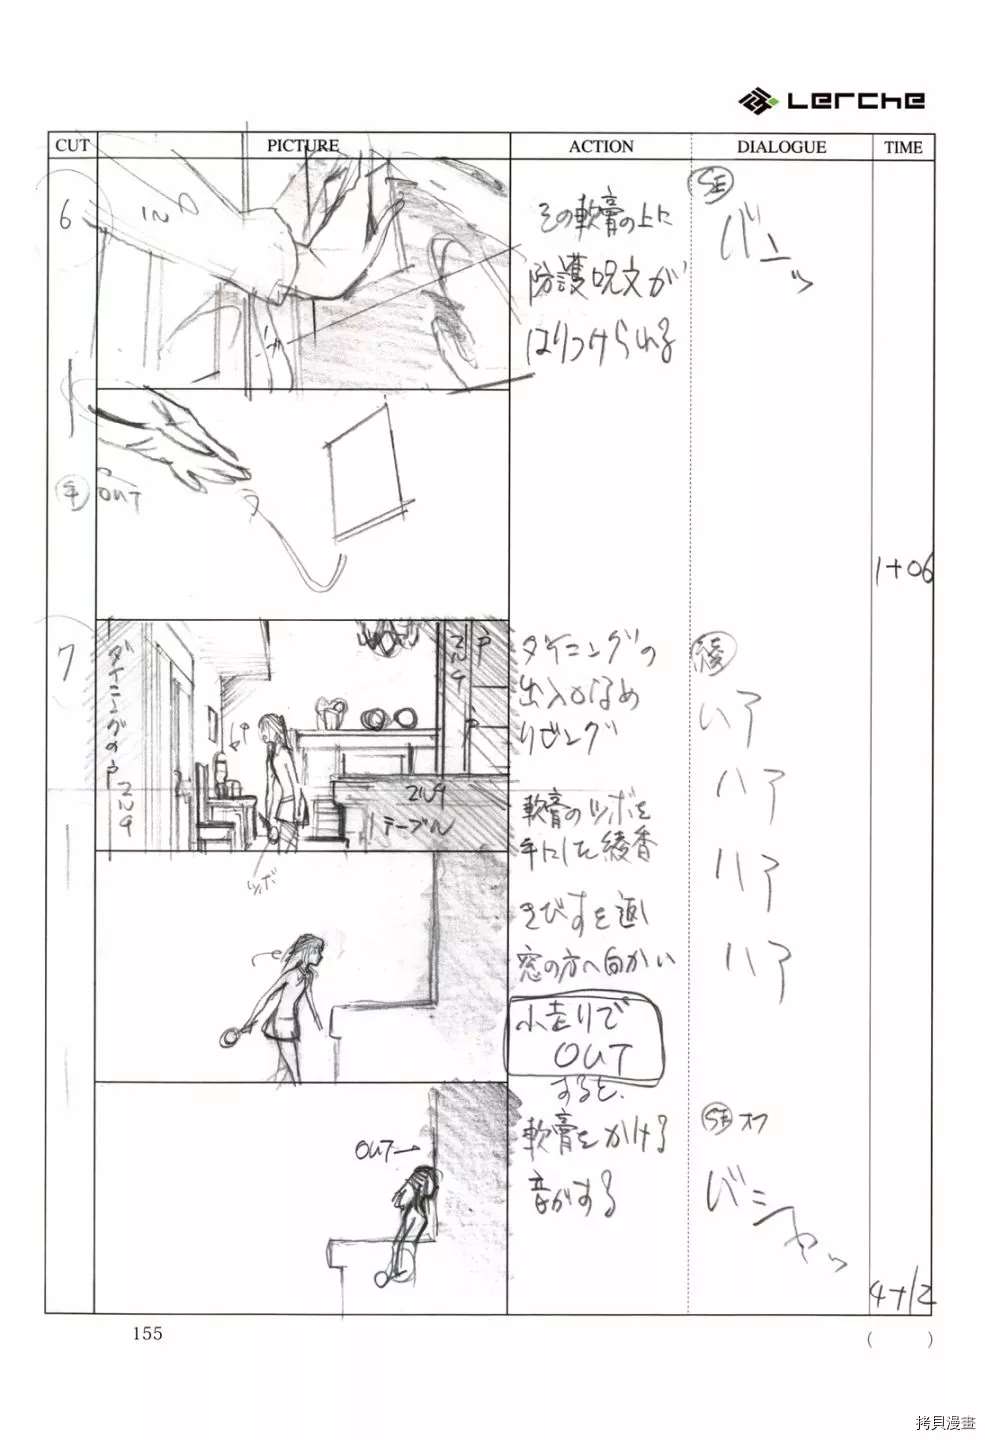 Lerche
CUT PICTURE ACTION DIALOGUE TIME
6
IN
その軟膏の上に
防護呪文が
はりつけられる
SE
バンッ
手 OUT
1+06
7
ダイニングの戸
BOOK
BOOK
戸
BOOK
テーブル
ツボ
ダイニングの
出入口なめ
リビング
軟膏のツボを
手にした綾香
きびすを返し
窓の方へ向かい
小走りで
OUT
すると、
軟膏をかける
音がする
綾
ハア
ハア
ハア
ハア
OUT→
SE オフ
バシャッ
4+12
155
( )
拷貝漫畫